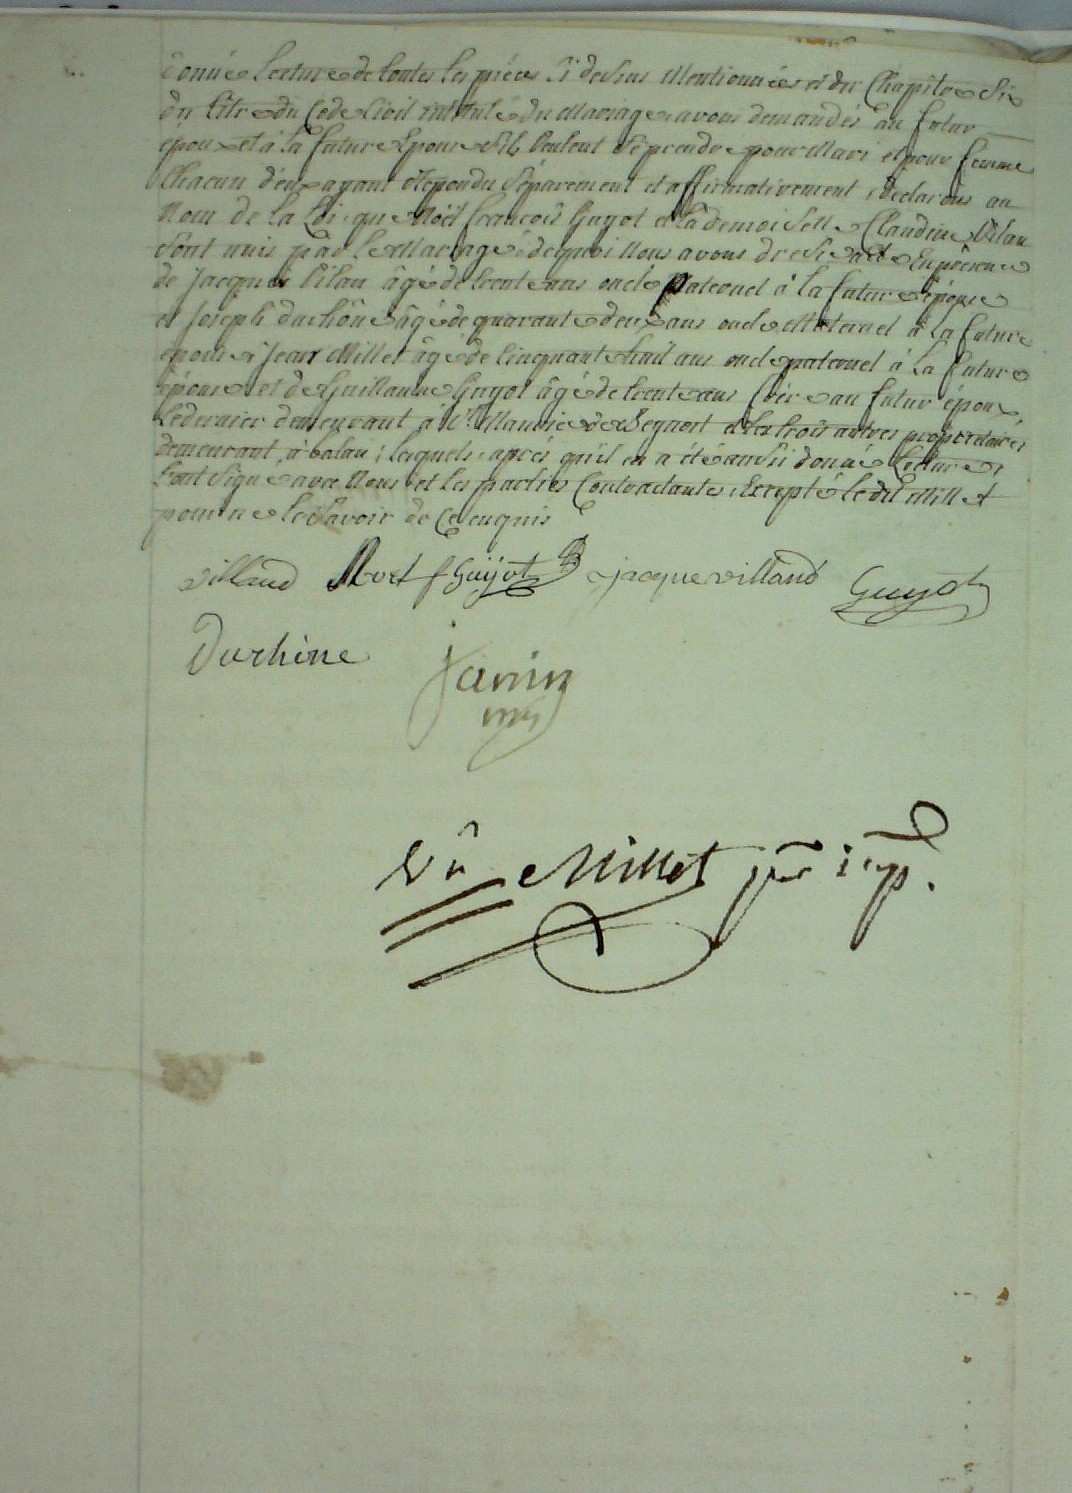 donné lecture de toutes les pièces Si dessus Mentionnées et du Chapitre Six
du titre du Code Civil intitulé du Mariage avons demandés au futur
époux et à la future Epouse S'ils veulent Se prendre pour Mari et pour femme
Chacun d'eux ayant Répondu Séparement et affirmativement, declarons au
Nom de la Loi que Noël françois Guyot et la demoiselle Claudine Vilan
Sont unis par le Mariage: de quoi Nous avons dressé acte En présence
de Jacques Vilan âgé de trente ans oncle paternel à la future épouse
et Joseph duchêne âgé de quarante deux ans oncle Maternel à la future
épouse, Jean Millet âgé de Cinquante huit ans oncle paternel à la future
épouse et de Guillaume Guyot âgé de trente ans frère au futur époux
Le dernier demeurant à St. Maurice de Beynost et les trois autres propriétaires
demeurant à balan; lesquels, après qu'il en a été aussi donné Lecture,
L'ont Signé avec Nous et les parties Contractantes, Excepté ledit Millet
pour ne le Savoir de ce enquis
villand Noel f Guÿot jacque villand Guyot
Duchine janin
Vû Millet